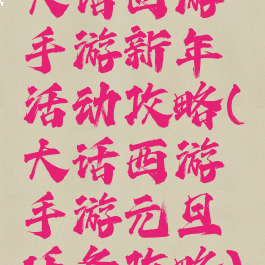 大话西游
手游新年
活动攻略(
大话西游
手游元旦
任务攻略)